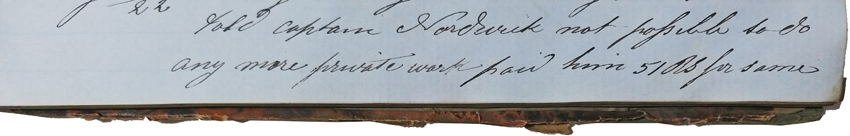 22 Told captain Nordwick not possible to do
any more private work paid him 51 Rs for same